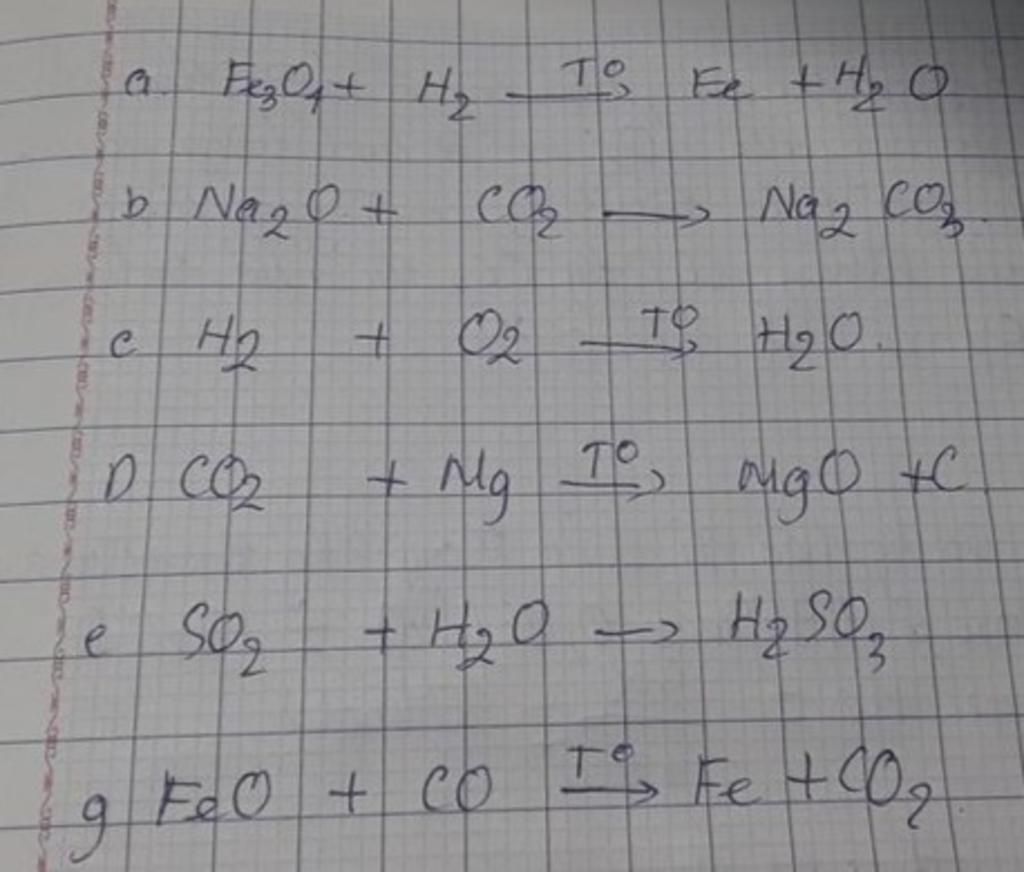 a. Fe₃O₄ + H₂ —T°→ Fe + H₂O
b Na₂O + CO₂ → Na₂CO₃.
c H₂ + O₂ —T°→ H₂O.
D CO₂ + Mg —T°→ MgO + C
e SO₂ + H₂O → H₂SO₃
g FeO + CO —T°→ Fe + CO₂.